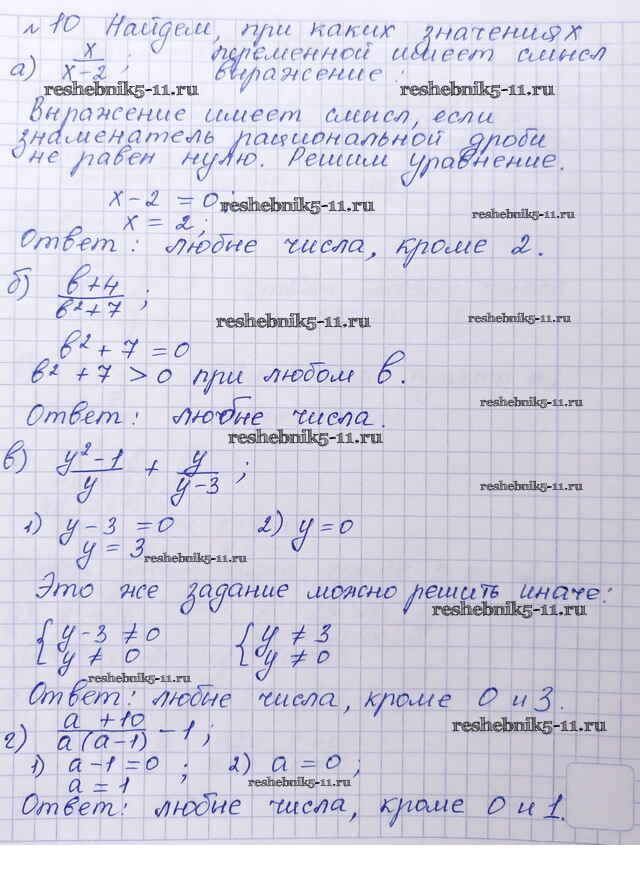 № 10 Найдем, при каких значениях
переменной имеет смысл
выражение:
а) x/(x-2) ;
reshebnik5-11.ru reshebnik5-11.ru
Выражение имеет смысл, если
знаменатель рациональной дроби
не равен нулю. Решим уравнение.
x - 2 = 0; reshebnik5-11.ru
x = 2; reshebnik5-11.ru
Ответ: любые числа, кроме 2.
б) (b+4)/(b²+7) ;
reshebnik5-11.ru reshebnik5-11.ru
b² + 7 = 0
b² + 7 > 0 при любом b.
reshebnik5-11.ru
Ответ: любые числа.
reshebnik5-11.ru
в) (y²-1)/y + y/(y-3) ;
reshebnik5-11.ru
1) y - 3 = 0 2) y = 0
y = 3 reshebnik5-11.ru
Это же задание можно решить иначе:
reshebnik5-11.ru
{ y - 3 ≠ 0 { y ≠ 3
y ≠ 0 y ≠ 0
reshebnik5-11.ru
Ответ: любые числа, кроме 0 и 3.
г) (a+10)/(a(a-1)) - 1 ;
reshebnik5-11.ru
1) a - 1 = 0 ; 2) a = 0 ;
a = 1 reshebnik5-11.ru
Ответ: любые числа, кроме 0 и 1.